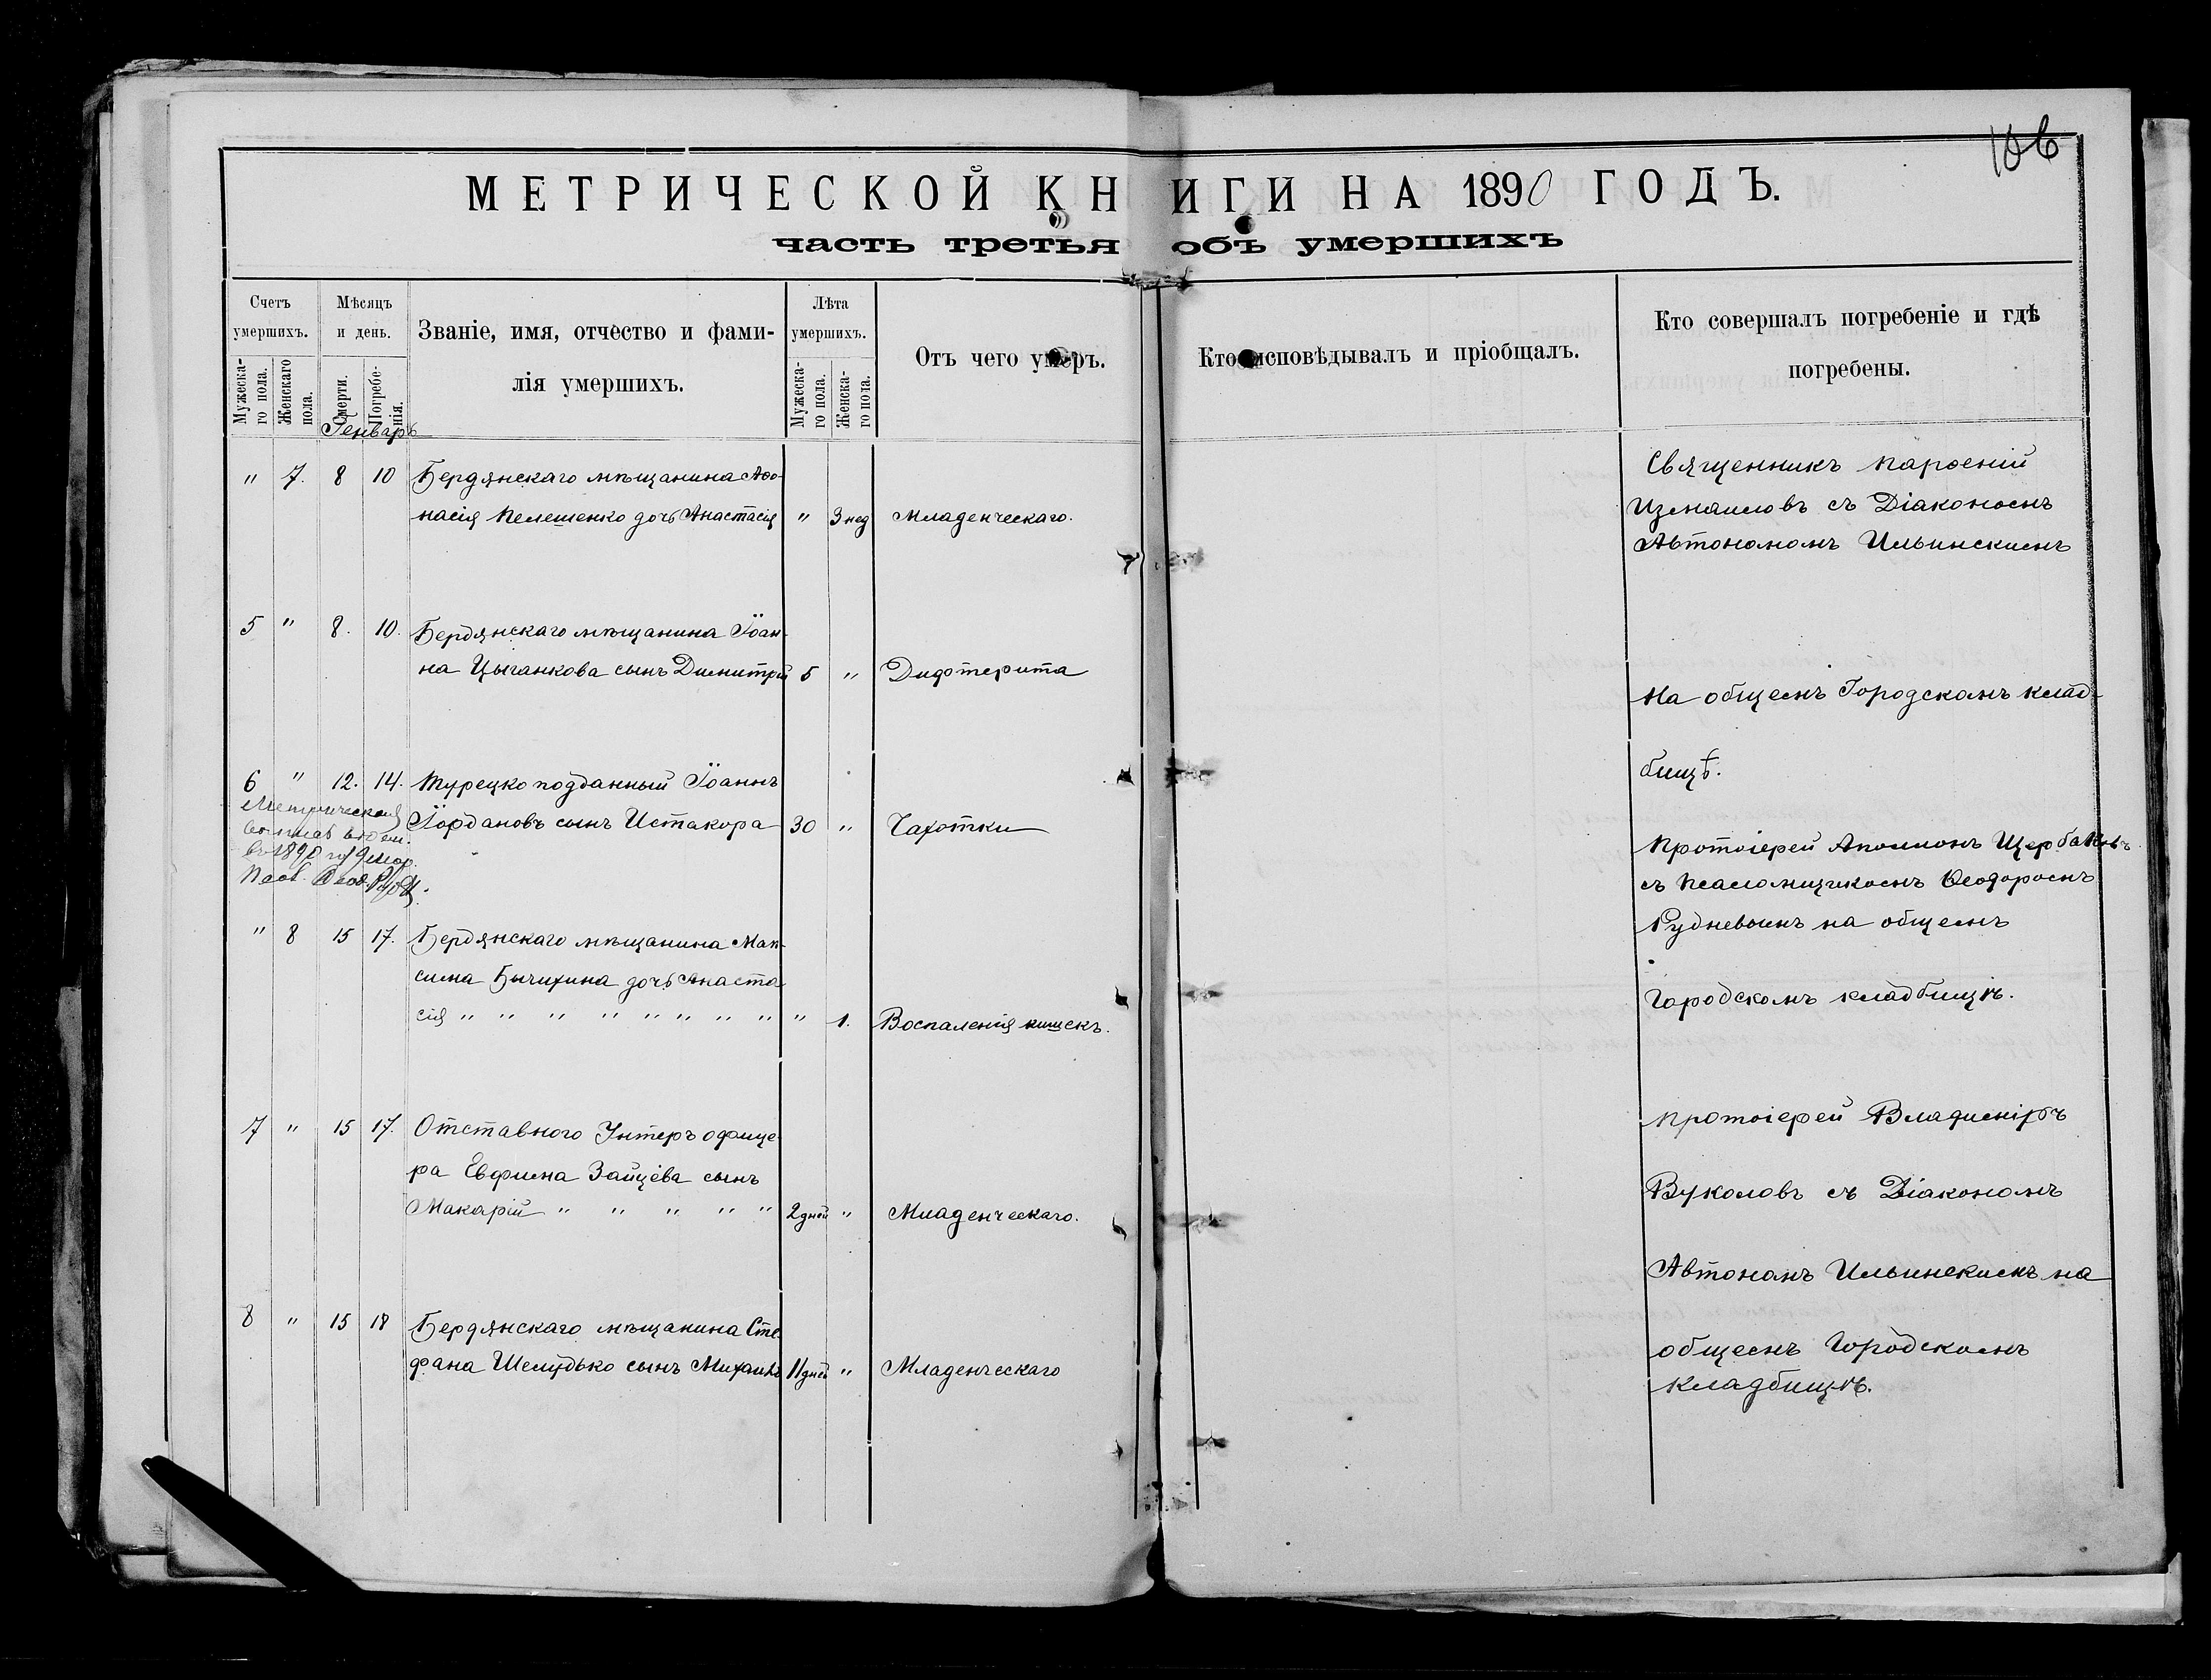 106
МЕТРИЧЕСКОЙ КНИГИ НА 1890 ГОДЪ.
часть третья объ умершихъ
Счетъ умершихъ.
Мужеска-го пола.
Женскаго пола.
Мѣсяцъ и день.
Смерти.
Погребе-нія.
Званіе, имя, отчество и фами-
лія умершихъ.
Лѣта умершихъ.
Мужеска-го пола.
Женска-го пола.
Отъ чего умеръ.
Кто исповѣдывалъ и пріобщалъ.
Кто совершалъ погребеніе и гдѣ
погребены.
Генварь
" 7. 8 10 Бердянскаго мѣщанина Аѳо-
насія Пелешенко дочь Анастасія " 3 нед Младенческаго.
Священникъ Парѳеній
Измаиловъ съ Діакономъ
Автономомъ Ильинскимъ
5 " 8. 10. Бердянскаго мѣщанина Іоан-
на Цыганкова сынъ Димитрій 5 " Дифтерита
На общемъ Городскомъ клад-
бищѣ.
6 " 12. 14. Турецко подданный Іоаннъ
Іордановъ сынъ Истакора 30 " Чахотки
Метрическая
въ 1890
Протоіерей Аполлонъ Щербаковъ
съ Псаломщикомъ Ѳеодоромъ
Рудневымъ на общемъ
Городскомъ кладбищѣ.
" 8 15 17. Бердянскаго мѣщанина Мак-
сима Бычихина дочь Анаста-
сія " " " " " " " " " 1. Воспаленія кишекъ.
7 " 15 17. Отставного Унтеръ офице-
ра Евфима Зайцева сынъ
Макарій " " " " " 2 дней " Младенческаго.
Протоіерей Владиміръ
Вуколовъ съ Діакономъ
Автономъ Ильинскимъ на
общемъ Городскомъ
кладбищѣ.
8 " 15 18 Бердянскаго мѣщанина Сте-
фана Шелудько сынъ Михаилъ 11 дней " Младенческаго